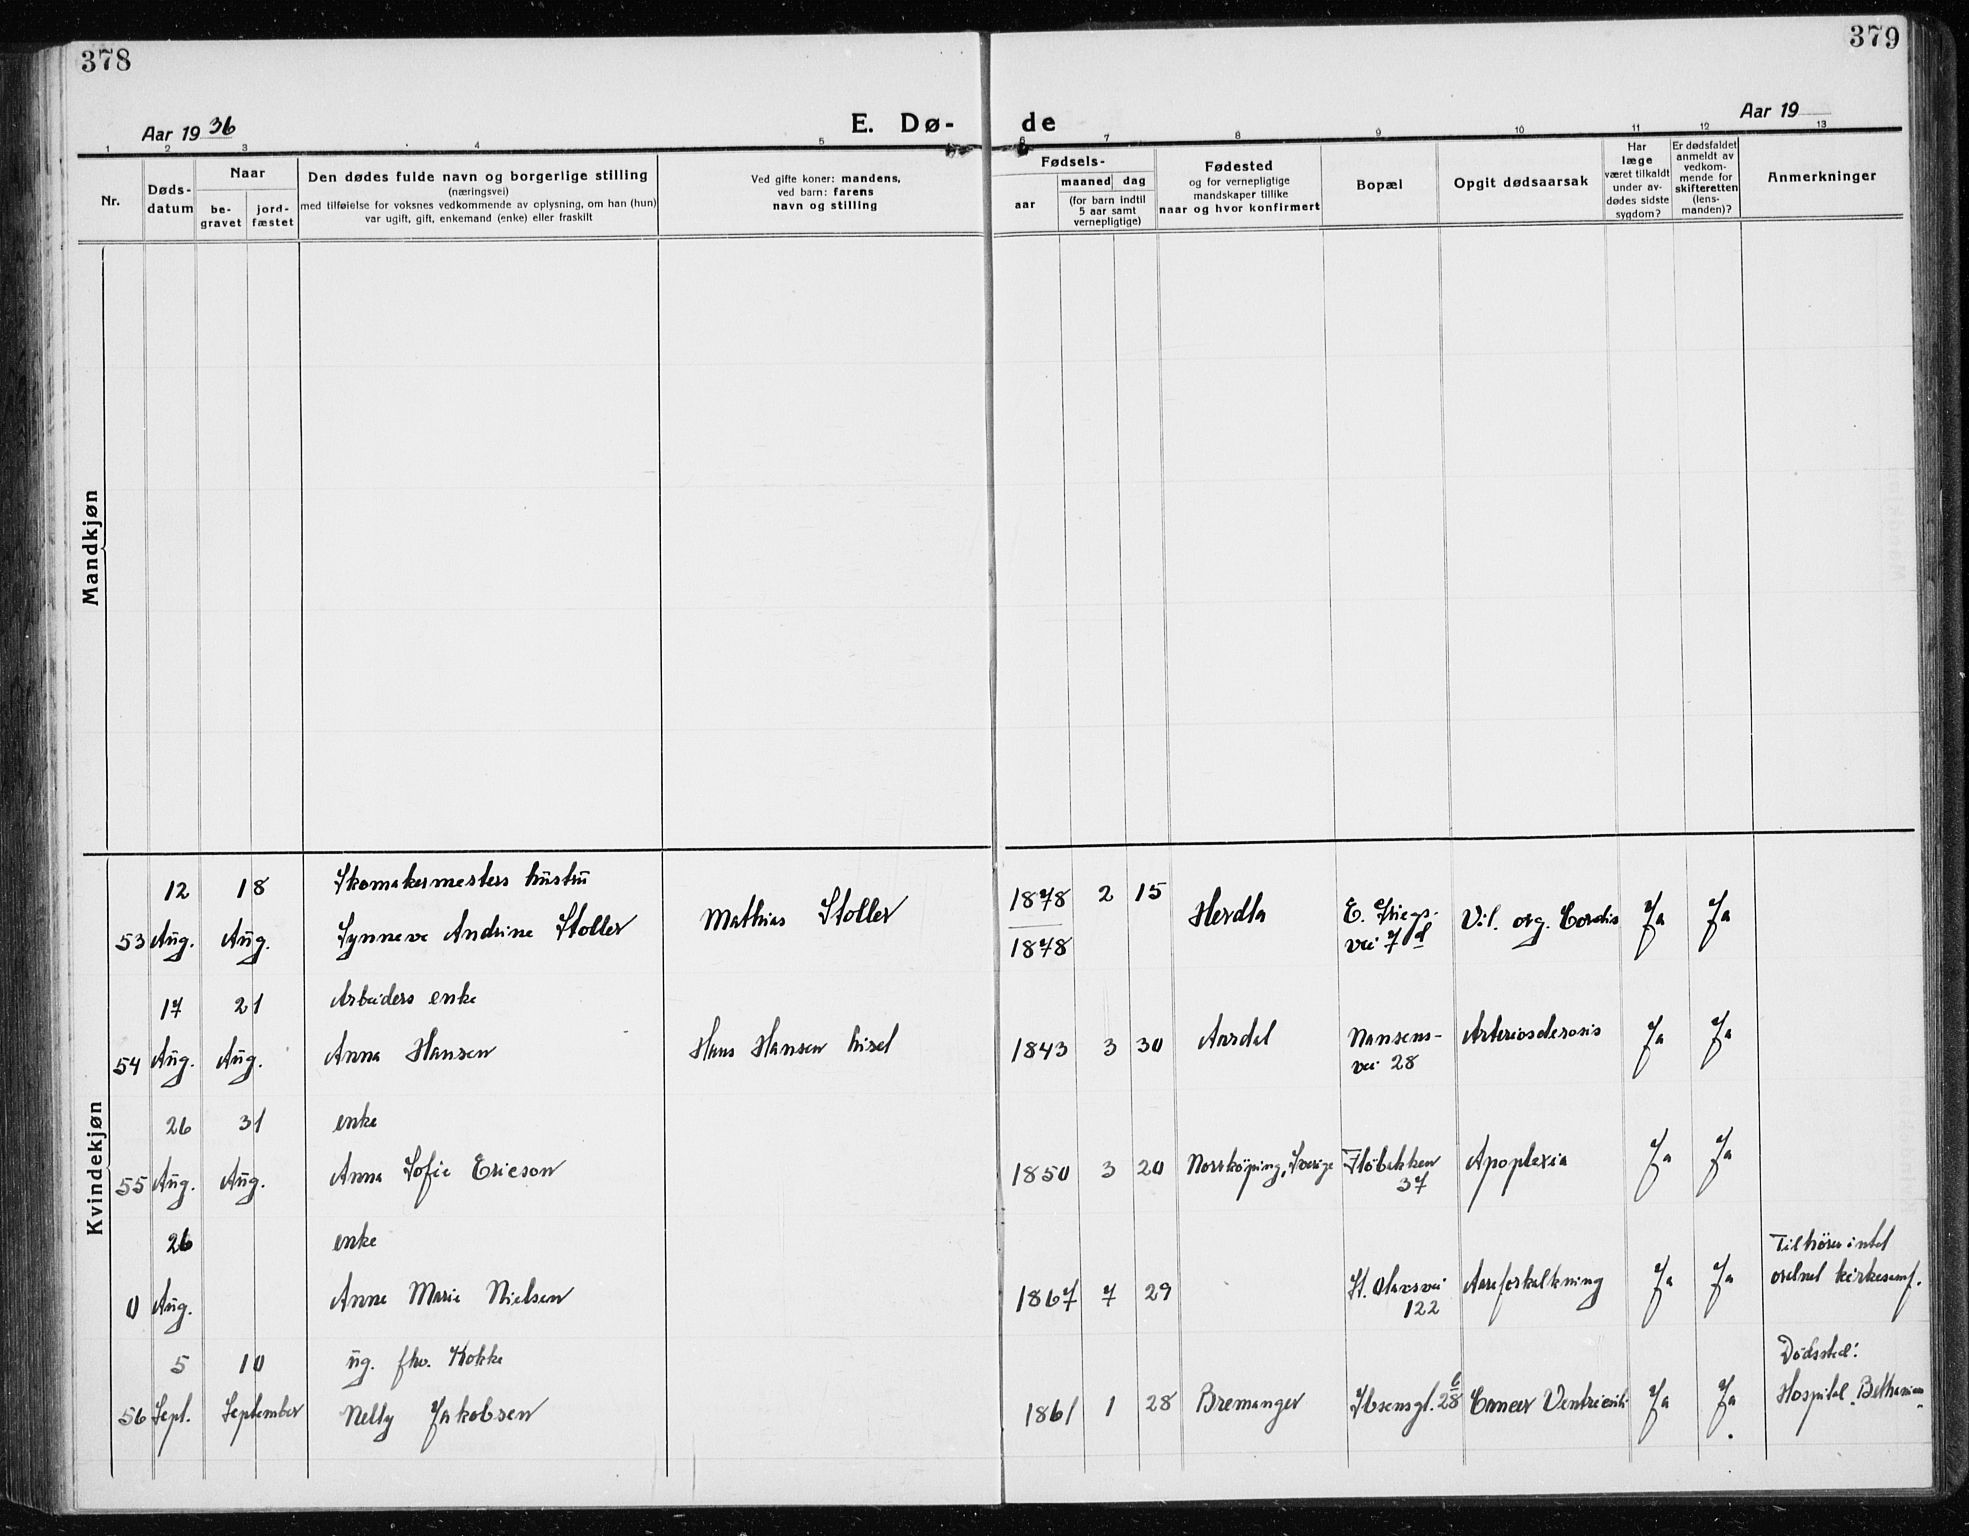 378
379
Aar 1936
E. Dø-
de
Aar 19
1 2 3 4 5 6 7 8 9 10 11 12 13
Nr.
Døds-
datum
Naar
be-
gravet
jord-
fæstet
Den dødes fulde navn og borgerlige stilling
(næringsvei)
med tilføielse for voksnes vedkommende av oplysning, om han (hun)
var ugift, gift, enkemand (enke) eller fraskilt
Ved gifte koner: mandens,
ved barn: farens
navn og stilling
Fødsels-
aar
maaned dag
(for barn indtil
5 aar samt
vernepligtige)
Fødested
og for vernepligtige
mandskaper tillike
naar og hvor konfirmert
Bopæl
Opgit dødsaarsak
Har
læge
været tilkaldt
under av-
dødes sidste
sygdom?
Er dødsfaldet
anmeldt av
vedkom-
mende for
skifteretten
(lens-
manden)?
Anmerkninger
Mandkjøn
Kvindekjøn
12 18 Skomakermesters hustru
53 Aug. Aug. Synneve Andrine Stoller
Mathias Stoller
1878 2 15
1878
Herdla
E. Griegs-
vei 7 d
Vit. org. Cordis
Ja Ja
17 21 Arbeiders enke
54 Aug. Aug. Anna Hansen
Hans Hansen
1843 3 30
Aardal
Nansens-
vei 28
Arteriosclerosis
Ja Ja
26 31 enke
55 Aug. Aug. Anna Sofie Ericson
1850 3 20
Norrköping, Sverige
Fløbakken
37
Apoplexia
Ja Ja
26 enke
0 Aug. Anne Marie Nielsen
1867 7 29
St. Olavsvei
122
Aareforkalkning
Ja Ja
Tilhører intet
ordnet kirkesamf.
5 10 ug. fhv. Kokke
56 Sept. September Nelly Jakobsen
1861 1 28
Bremanger
Ibsensgt. 28 6
Cancer Ventriculi
Ja Ja.
Dødssted:
Hospital "Bethanien"